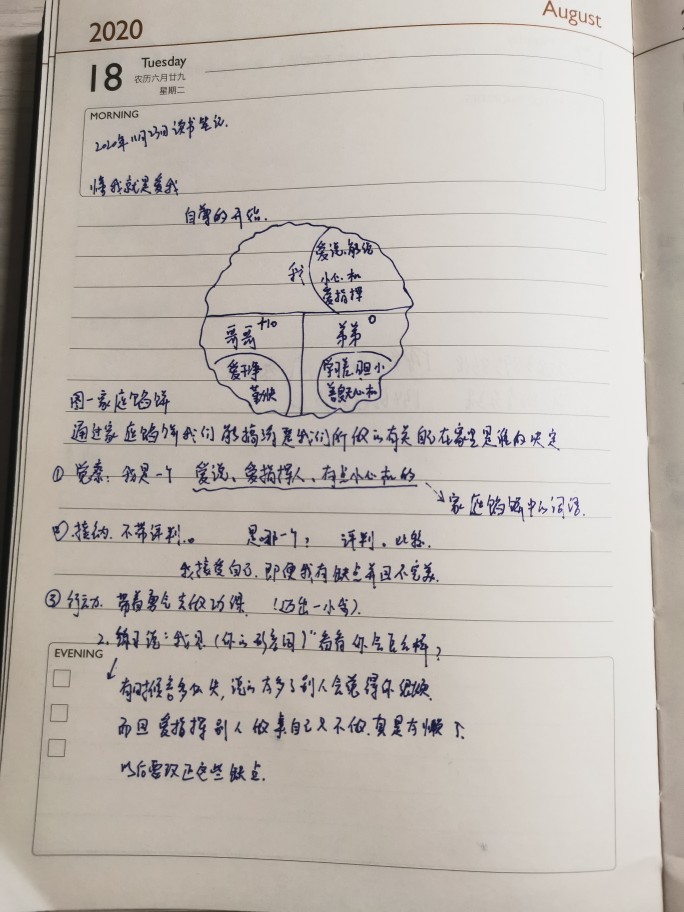 2020
August
18
Tuesday
农历六月廿九
星期二
MORNING
2020年11月23日读书笔记.
懂我就是爱我
自尊的开始.
我
爱说、能说
小心机
爱指挥
哥哥 +10
弟弟 0
爱干净
勤快
学习差、胆小
善良无心机
图一家庭馅饼
通过家庭馅饼我们能搞清楚我们所做的有关的在家里是谁的决定
① 觉察：我是一个 爱说、爱指挥人、有点小心机的
家庭馅饼中的词语.
②.接纳.不带评判。 是哪一个？ 评判。比较.
我接受自己.即使我有缺点并且不完美.
③ 行动力.带着勇气去做功课.（迈出一小步）.
2.练习说：“我是（你的形容词）”看看你会怎么样？
EVENING
有时候言多必失,说的太多了别人会觉得你很烦.
而且爱指挥别人做事自己又不做.真是太懒了.
以后要改正这些缺点.